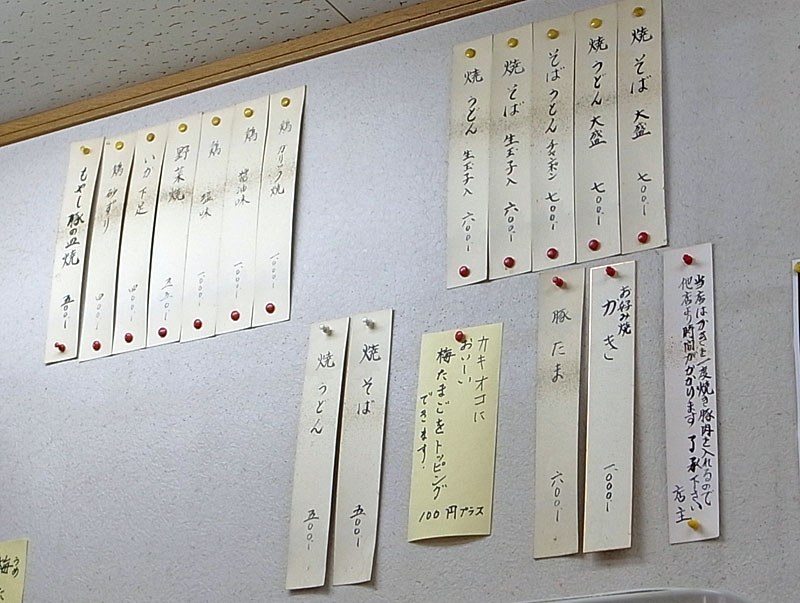 焼そば 大盛 七〇〇.-
焼うどん 大盛 七〇〇.-
そばうどん チャンポン 七〇〇.-
焼そば 生玉子入 六〇〇.-
焼うどん 生玉子入 六〇〇.-
鶏 カリカリ焼 一〇〇〇.-
鶏 醤油味 一〇〇〇.-
鶏 塩味 一〇〇〇.-
野菜焼 五五〇.-
いか下足 四〇〇.-
鶏 砂ずり 四〇〇.-
もやし豚の皿焼 五〇〇.-
当店はかきを一度焼き豚肉を入れるので
他店より時間がかかります 了承下さい
店主
お好み焼
かき 一〇〇〇.-
豚たま 六〇〇.-
カキオコに
おいしい
梅たまごをトッピング
できます.
100円プラス
焼そば 五〇〇.-
焼うどん 五〇〇.-
うめ
梅